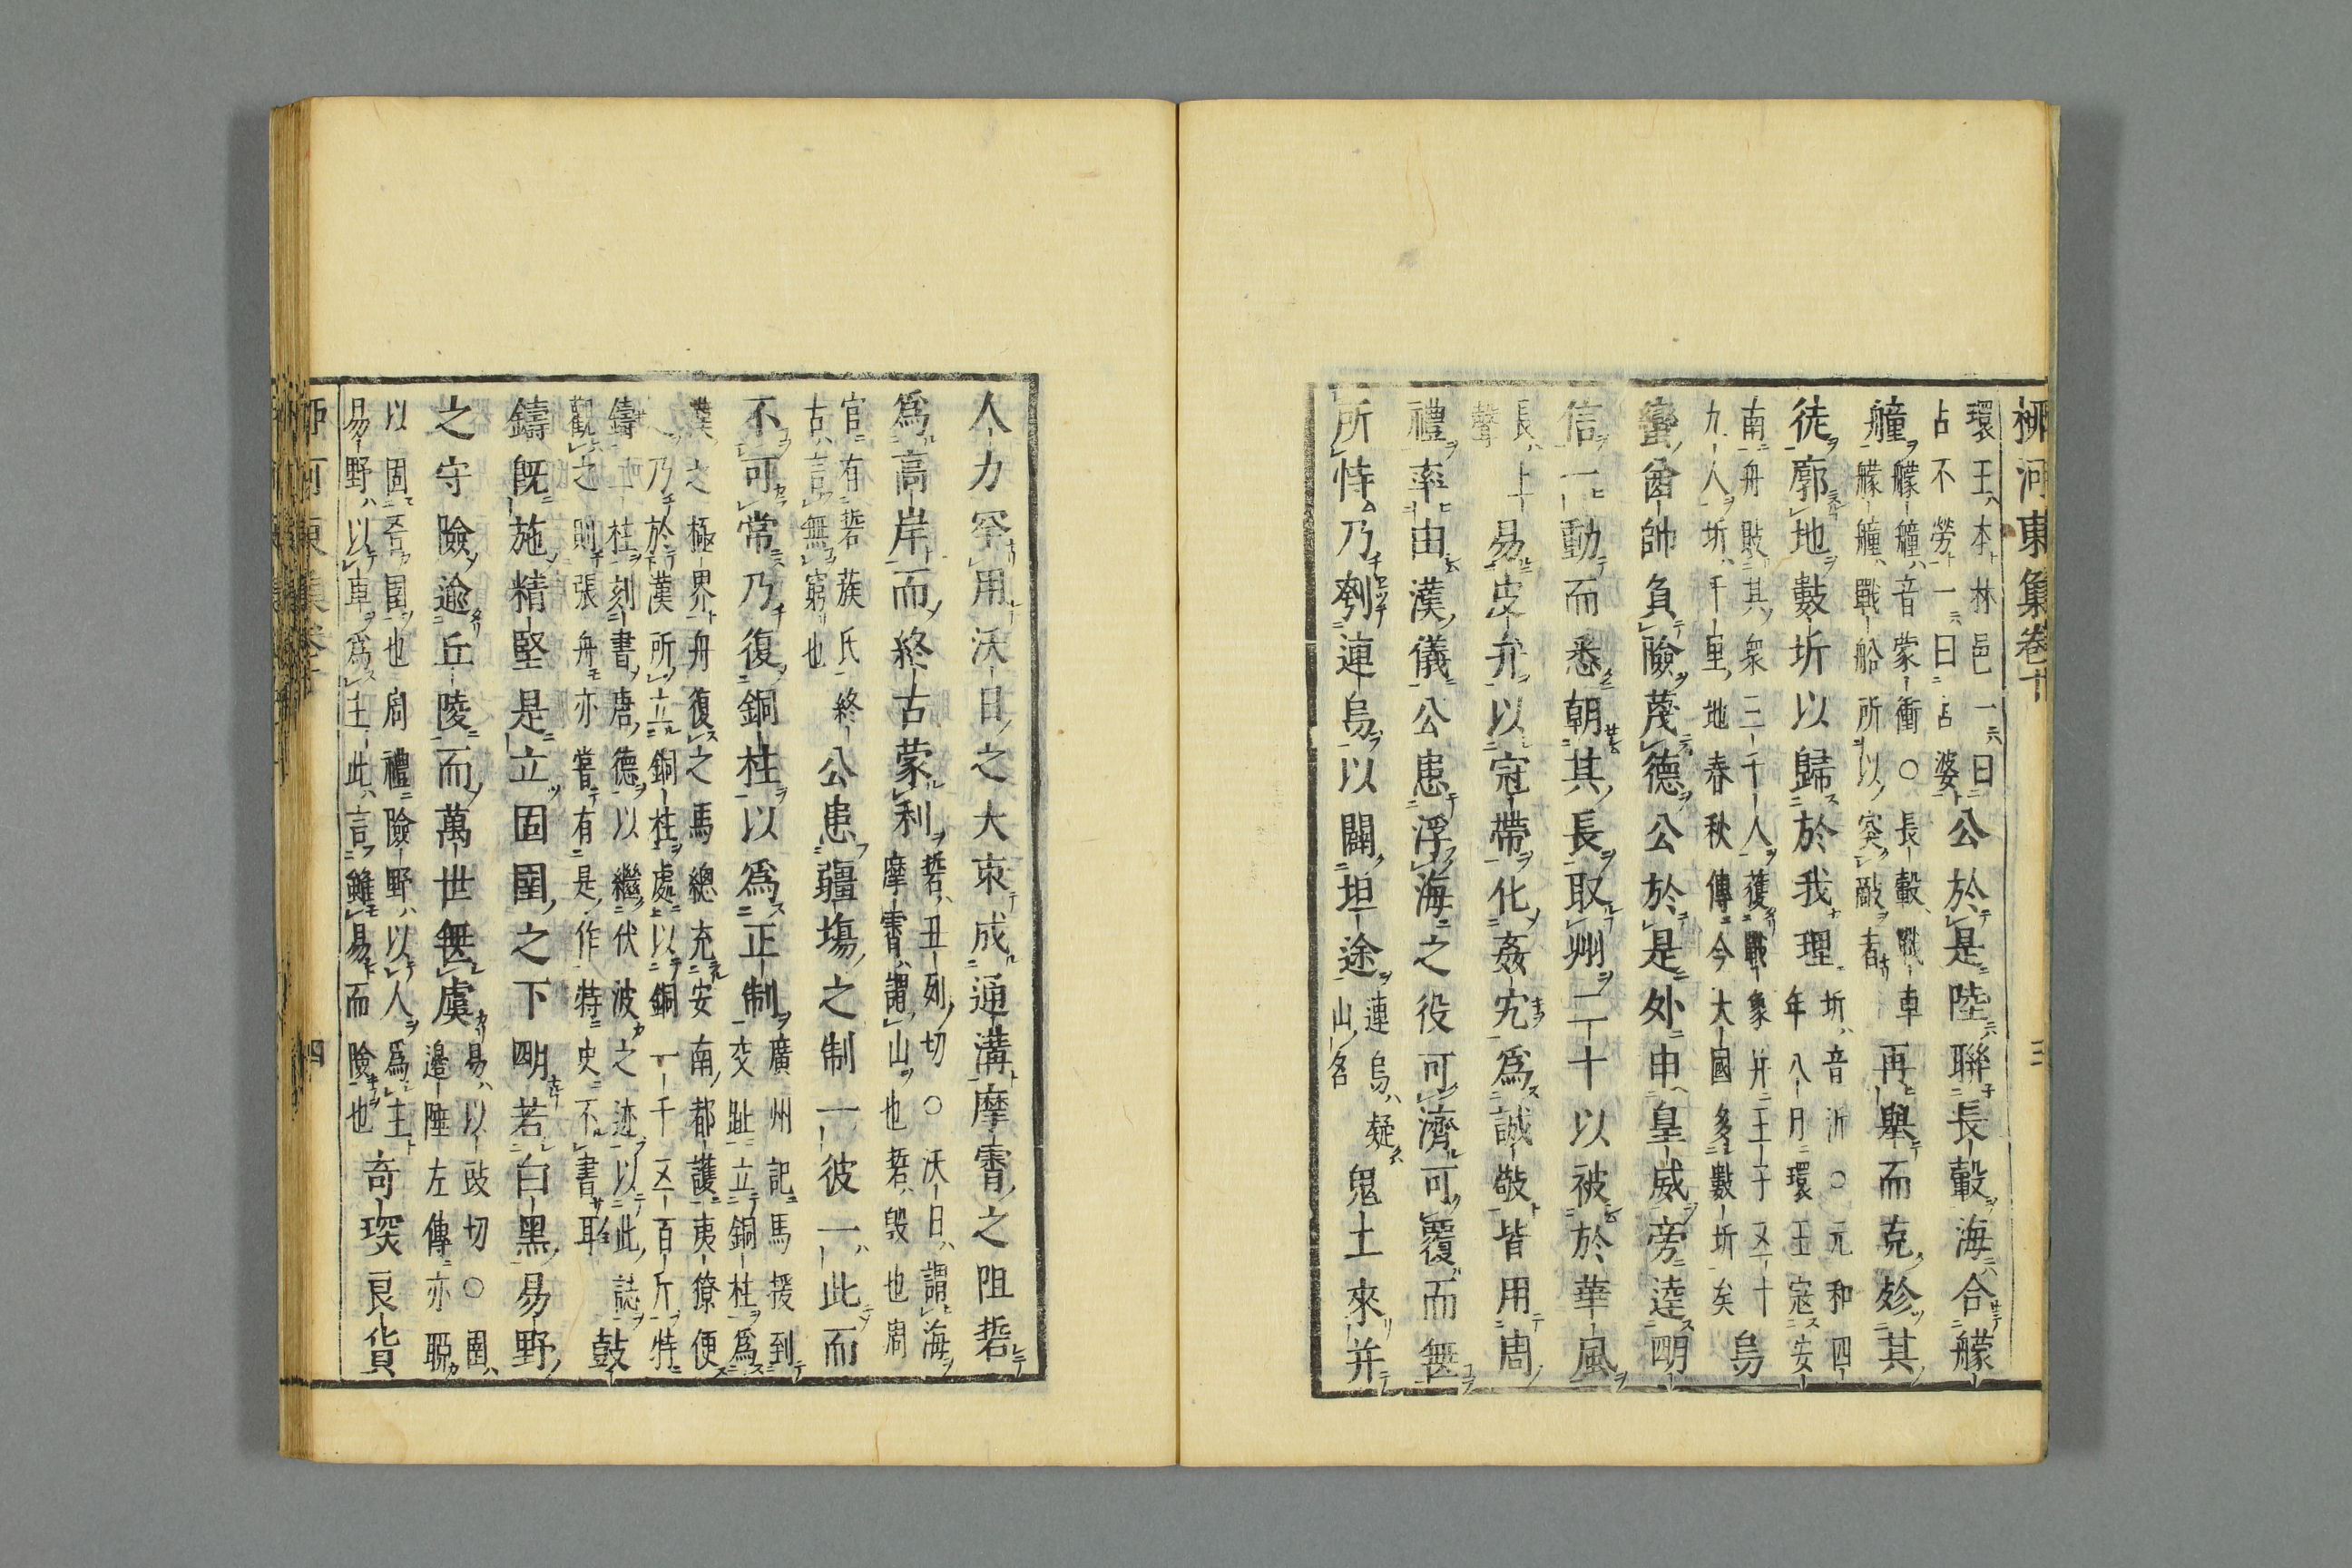 柳河東集卷十　三
環王本林邑一曰
占不勞一曰占婆
公於是陸聯長轂海合艨
艟
艨艟音蒙衝○長轂戰車
艨艟戰船所以突敵者
再舉而克殄其
徒廓地數圻以歸於我理
圻音沂○元和四
年八月環王寇安
南舟敗其衆三千人獲戰象并王子五十
九人圻千里地春秋傳今大國多數圻矣
烏
蠻酋帥負險蔑德公於是外申皇威旁逵明
信一動而悉朝其長取州二十以被於華風
長上
聲
易皮弁以冠帶化姦宄爲誠敬皆用周
禮率由漢儀公患浮海之役可濟可覆而無
所恃乃刳連烏以闢坦途
連烏疑
山名
鬼土來并
人力罕用沃日之大束成通溝摩霄之阻硩
爲高岸而終古蒙利
硩丑列切○沃日謂海
摩霄謂山也硩毀也周
官有硩蔟氏終
古言無窮也
公患疆埸之制一彼一此而
不可常乃復銅柱以爲正制
廣州記馬援到
交趾立銅柱爲
漢之極界舟復之馬總充安南都護夷獠便
之乃於漢所立銅柱處以銅一千五百斤特
鑄二柱刻書唐德以繼伏波之迹以此誌
觀之則張舟亦嘗有是作特史不書耳
鼓
鑄既施精堅是立固圉之下明若白黑易野
之守險逾丘陵而萬世無虞
易以豉切○圉
邊陲左傳亦聊
以固吾圉也周禮險野以人爲主
易野以車爲主此言雖易而險也
奇琛良貨
柳河東集卷十　四